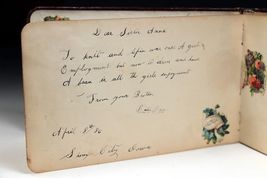 Dear Sister Anna
To knit and spin was once A girl's
Employment but now to dress and have
A beau is all the girls enjoyment
From your Brother
April 8th 86
Sioux City Iowa